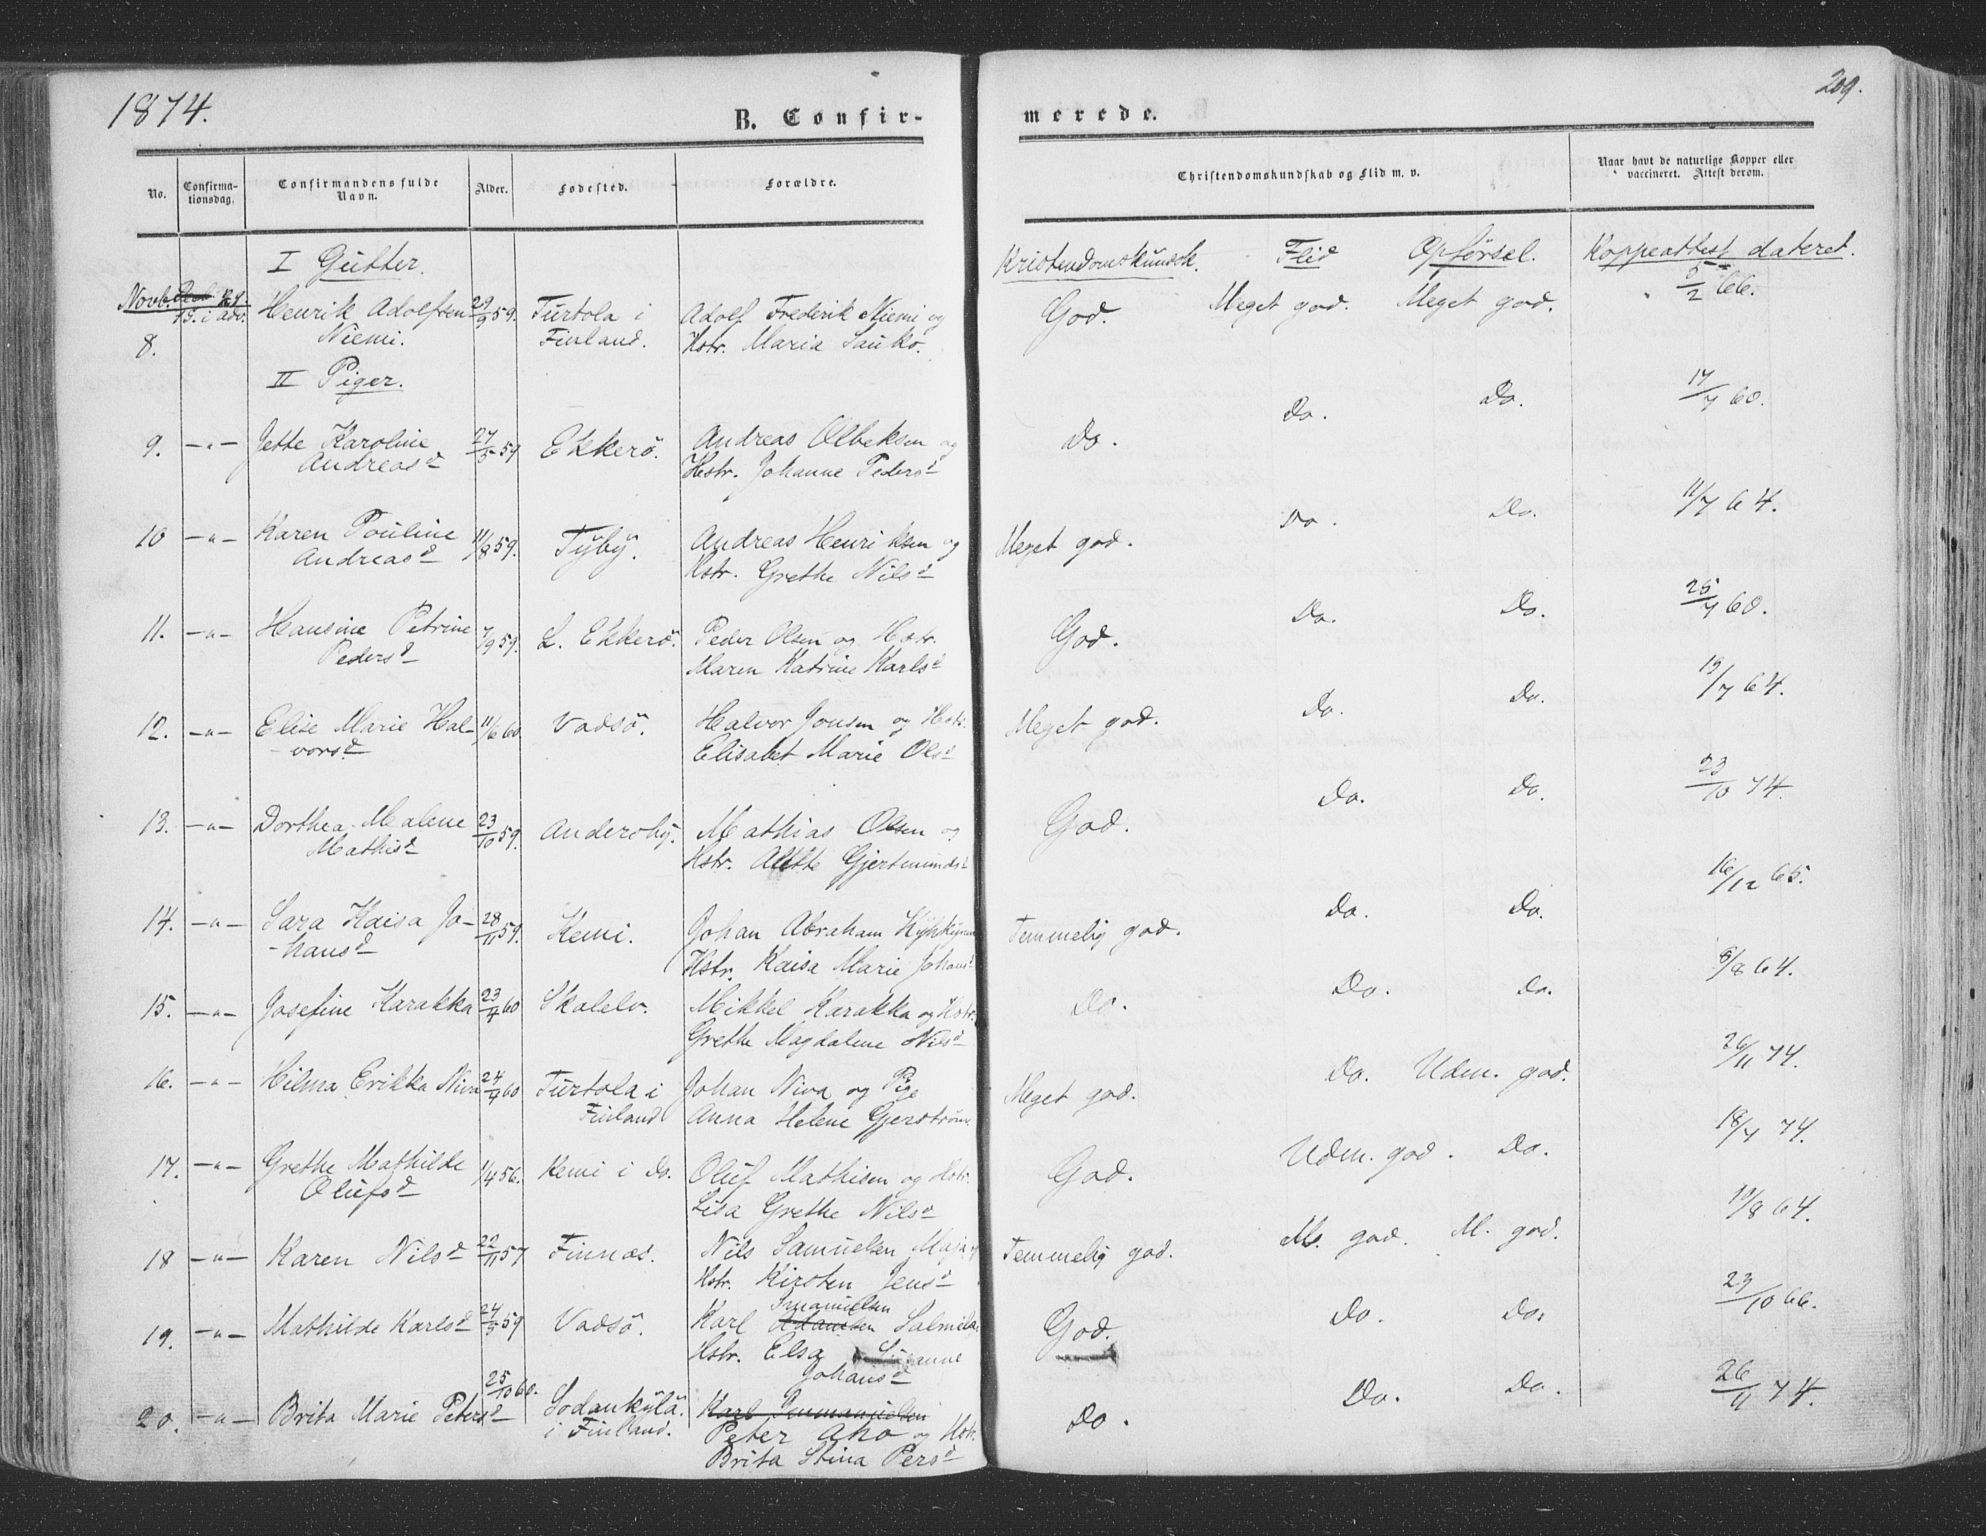 1874.
B. Confir-
merede.
209.
No.
Confirma-
tionsdag.
Confirmandens fulde
Navn.
Alder.
Fødested.
Forældre.
Christendomskundskab og Flid m. v.
Naar havt de naturlige Kopper eller
vaccineret. Attest derom.
I Gutter.
Kristendomskundsk. Flid Opførsel. Koppeattest dateret.
Novb.
1 S. i adv.
8. Henrik Adolfsen 29/9 59. Turtola i Adolf Frederik Niemi og God. Meget god. Meget god. 5/2 66.
Niemi. Finland. Hstr. Maria Sauko.
II Piger.
9. -"- Jette Karoline 27/5 59 Ekkerö. Andreas Olbeksen og Do. Do. Do. 17/7 60.
Andreasd Hstr. Johanne Pedersd
10 -"- Karen Pouline 11/8 59. Tyby. Andreas Henriksen og Meget god. Do. Do. 11/7 64.
Andreasd Hstr. Grethe Nilsd
11. -"- Hansine Petrine 7/9 59. L. Ekkerö. Peder Olsen og Hstr. God. Do. Do. 25/7 60.
Pedersd Maren Katrine Karlsd
12. -"- Elise Marie Hal- 11/6 60 Vadsö. Halvor Jonsen og Hstr. Meget god. Do. Do. 19/7 64.
vorsd Elisabet Marie Olsd
13. -"- Dorthea Malene 23/10 59. Andersby. Mathias Olsen og God. Do. Do. 23/10 74.
Mathisd Hstr. Alette Gjertmundsd
14. -"- Sara Kaisa Jo- 28/11 59. Kemi. Johan Abraham Temmelig god. Do. Do. 16/12 65.
hansd Hstr. Kaisa Marie Johansd
15. -"- Josefine Karakka 23/4 60 Skalelv. Mikkel Karakka og Hstr. Do. Do. Do. 6/8 64.
Grethe Magdalene Nilsd
16. -"- Hilma Erikka Niva 24/4 60 Turtola i Johan Niva og Pige Meget god. Do. Udm. god. 26/11 74.
Finland Anna Helene Gjerström
17. -"- Grethe Mathilde 1/4 56. Kemi i Do. Oluf Mathisen og Hstr. God. Udm. god. Do. 18/7 74.
Olufsd Lisa Grethe Nilsd
18 -"- Karen Nilsd 22/11 57 Finnæs. Nils Samuelsen Maja og Temmelig god. M. god. M. god. 19/8 64.
Hstr. Kirsten Jensd
19. -"- Mathilde Karlsd 24/3 59 Vadsö. Karl Imanuelsen Salmela God. Do. Do. 23/10 66.
Hstr. Elsa Susanne
Johansd
20. -"- Brita Marie Petersd 25/10 60. Sodankylä Karl Immanuelsen Do. Do. Do. 26/11 74.
i Finland. Peter Aho og Hstr.
Brita Stina Persd